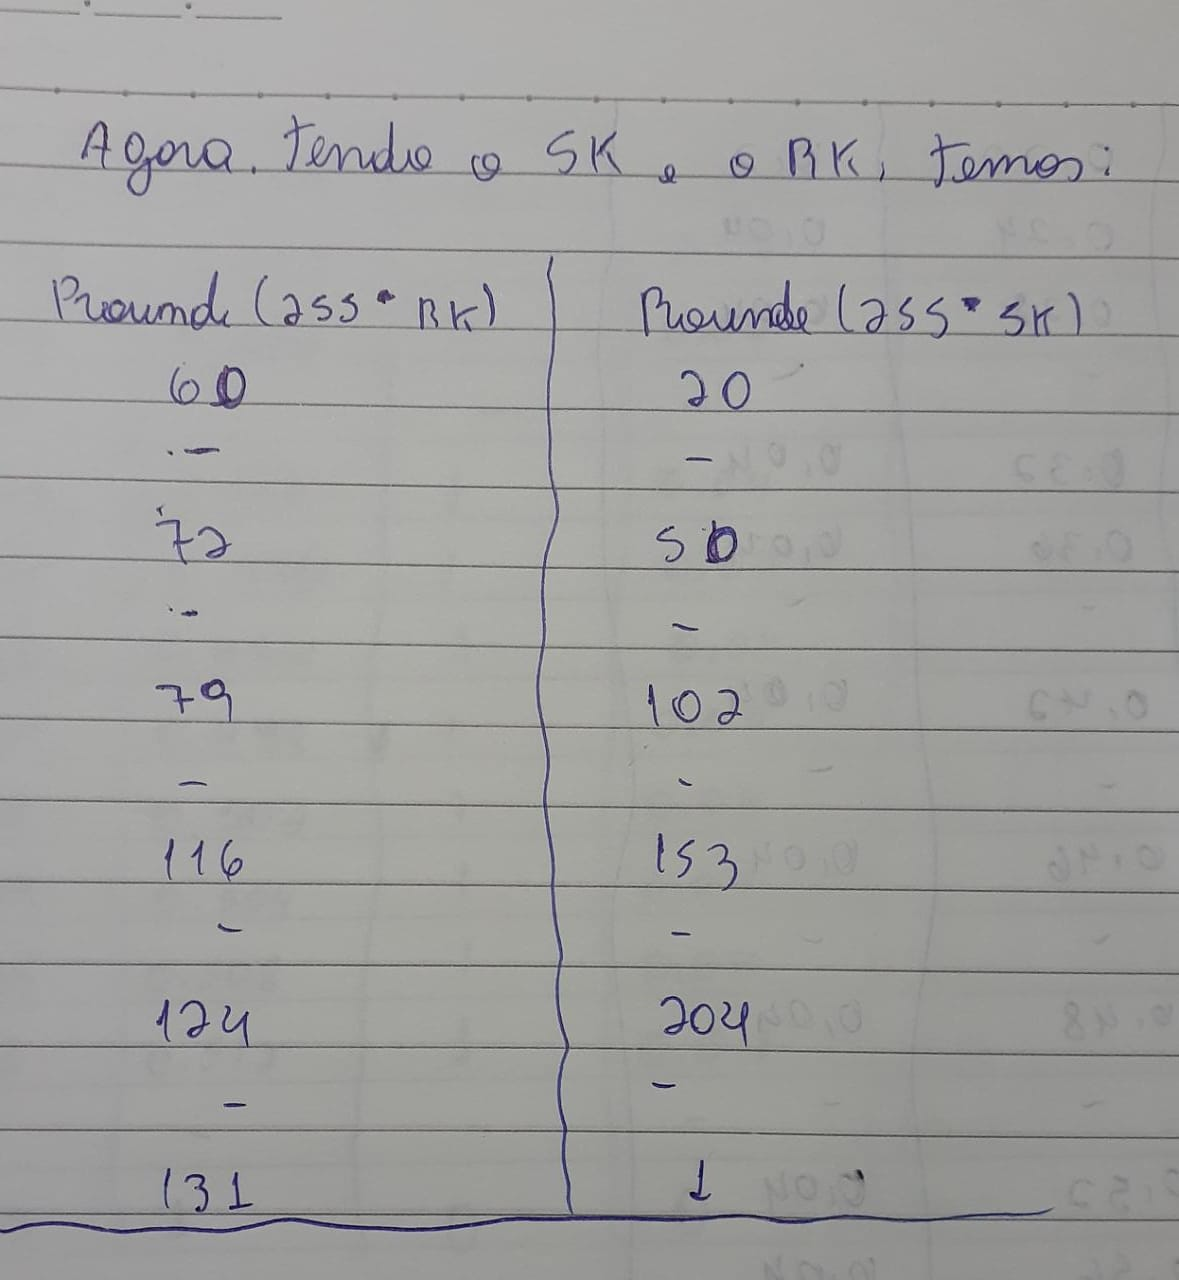 Agora. Tendo o SK e o RK, temos:
Round (255 • RK) Rounde (255 • SK)
60 20
- -
72 50
- -
79 102
- -
116 153
- -
124 204
- -
131 1